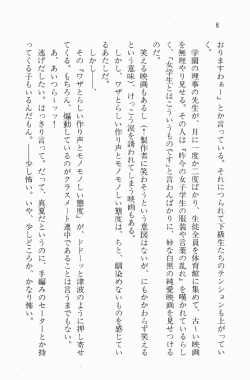 8
おりますわぁー」とか言っている。それにつられて下級生たちのテンションも上がっていく。
学園の理事の先生が、月に一度か二度ばかり、生徒全員を体育館に集めて、古ーい映画
を無理やり見せる。その人は「昨今の女子学生の服装や言葉の乱れ」を嘆かれているらし
く、「女学生とはこういうものです」と言わんばかりに、妙な白黒の純愛映画を見せつける
笑える映画もあるし（↑製作者に笑わそうという意図はないが、にもかかわらず笑える
という意味）、けっこう涙を誘われてしまう映画もある。
しかし──。
その「ワザとらしい作り声とモノモノしい態度は、ちと、馴染めないものを感じてい
しい作り声とモノモノしい態度」が、ドドドーッと津波のように押し寄せ
てくる。もちろん、煽動しているのがクラスメート連中であることは言うまでもない。
あ、あいつらーッ！
逃げだしたい。はっきり言って。だって、真夏だというのに、手編みのセーターとか持
ってくる子もいるんだよ。──少し怖い。いや、少しどころか、かなり怖い。